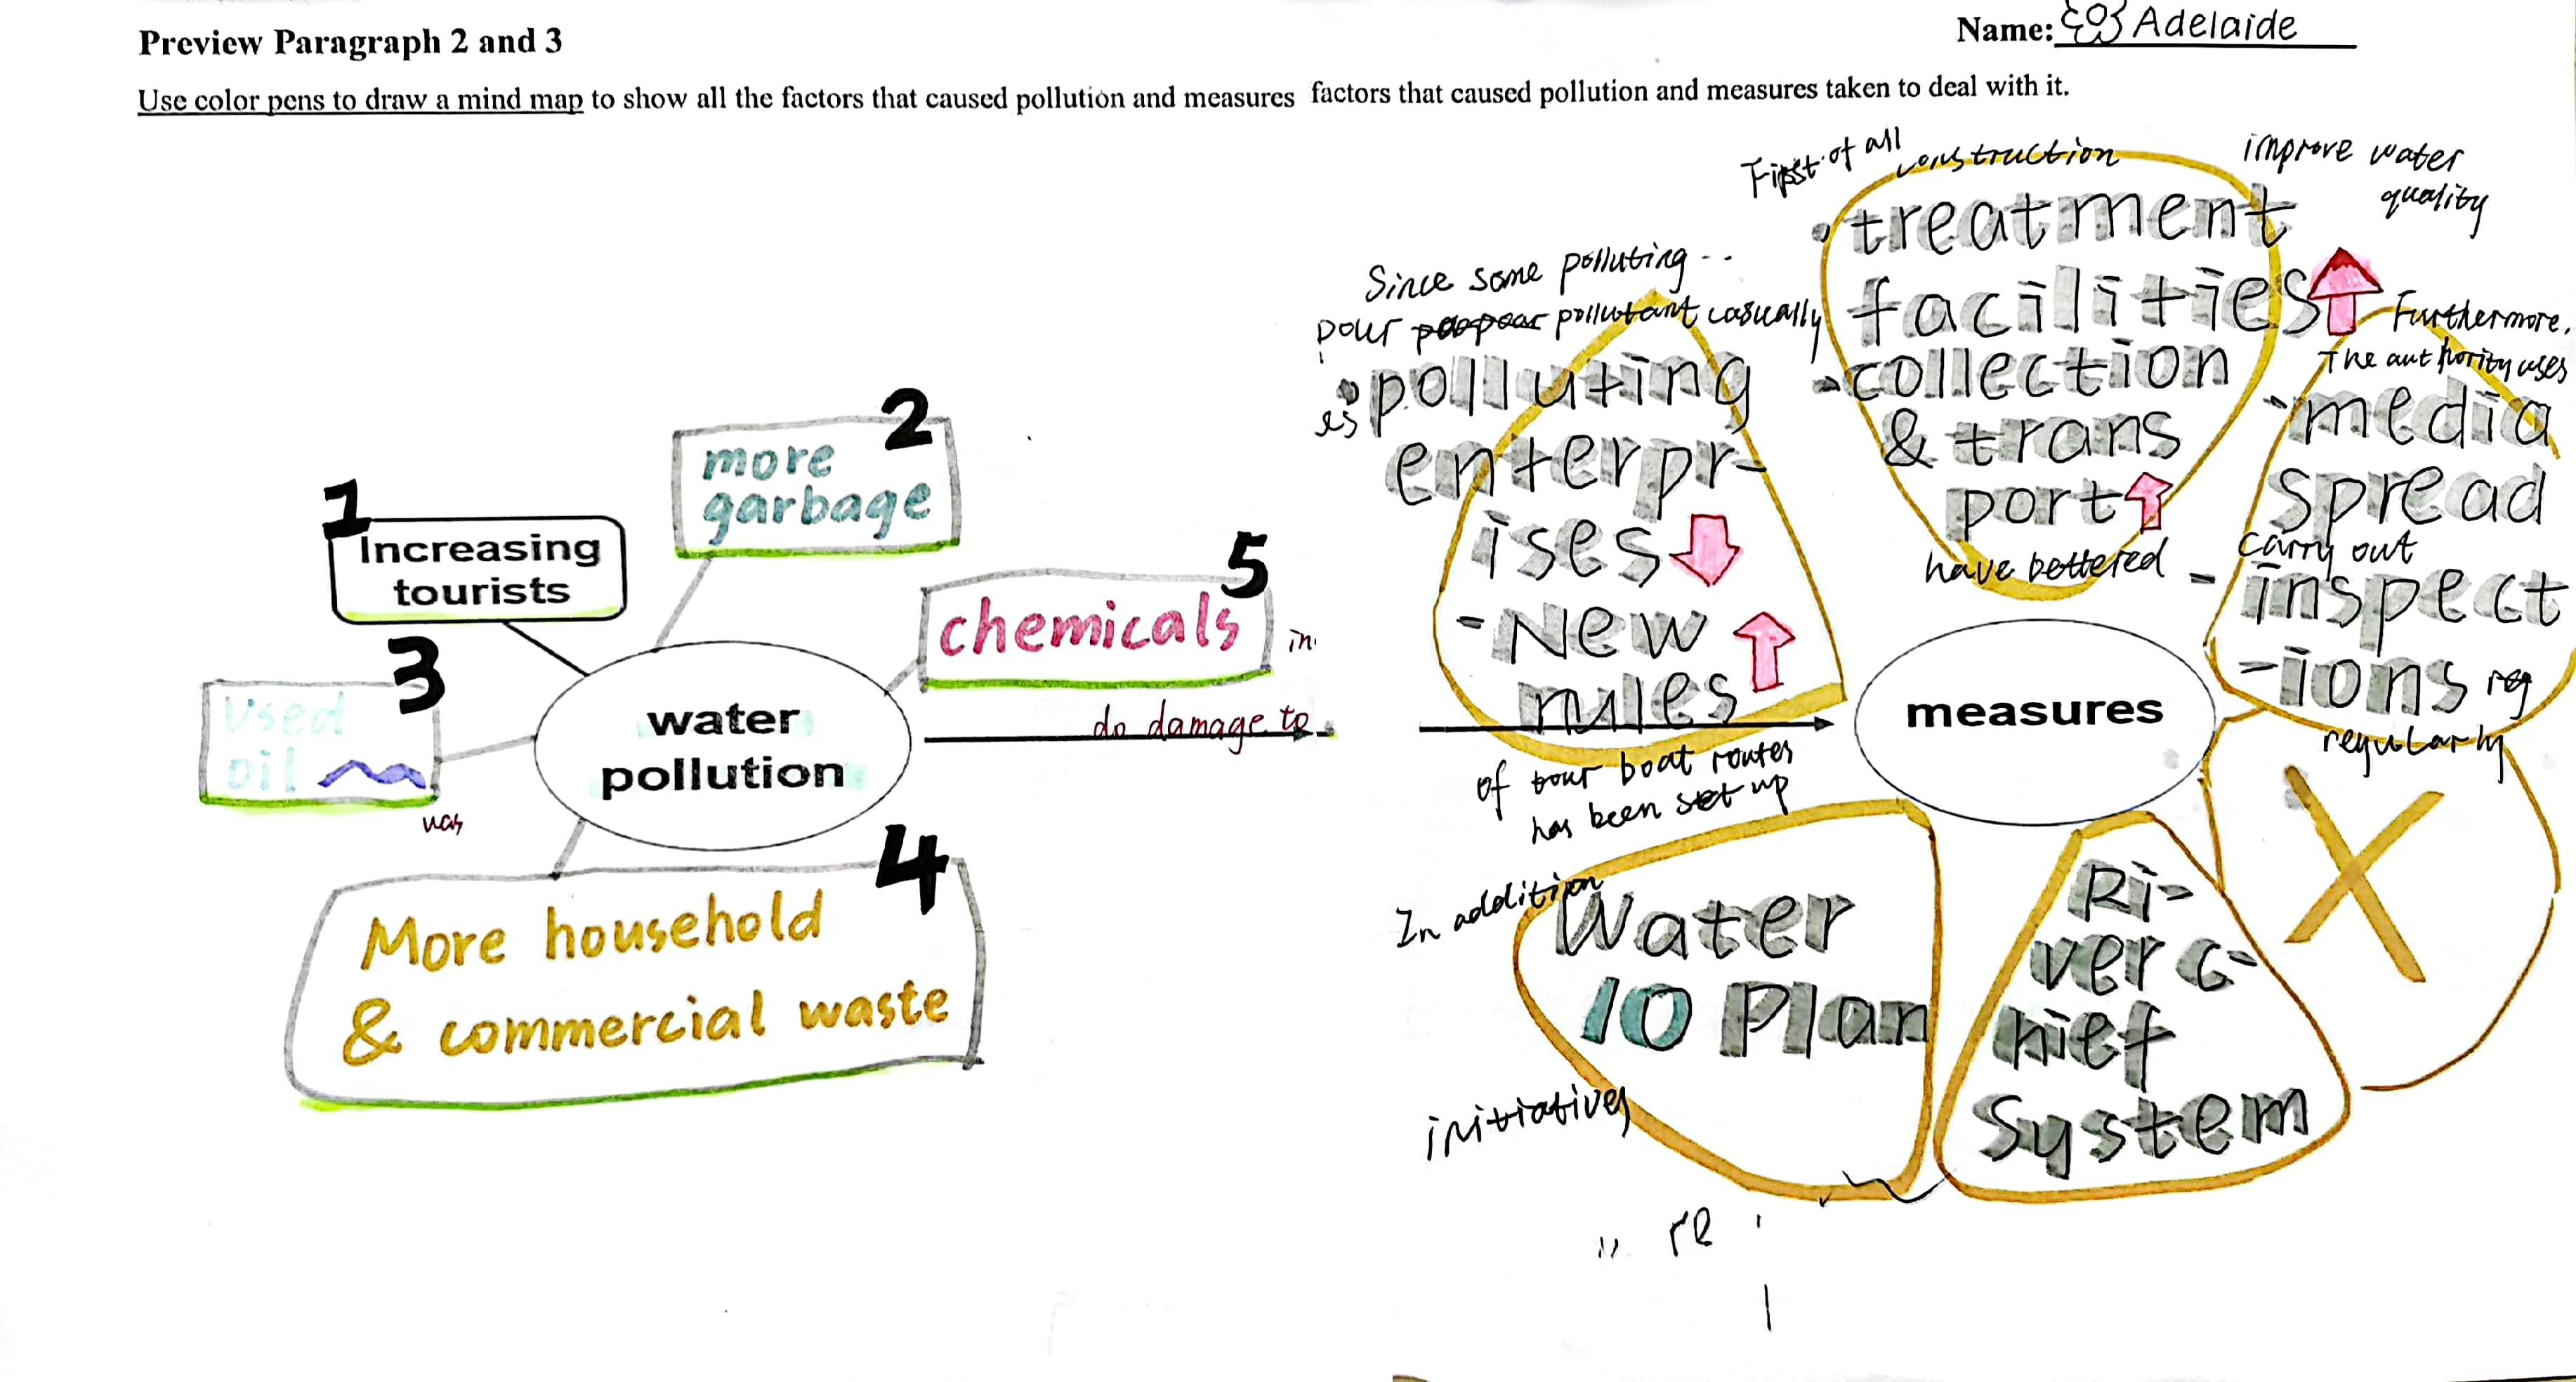 Preview Paragraph 2 and 3
Name: Adelaide
Use color pens to draw a mind map to show all the factors that caused pollution and measures factors that caused pollution and measures taken to deal with it.
1
Increasing
tourists
2
more
garbage
3
Used
oil
was
4
More household
& commercial waste
5
chemicals
in
water
pollution
do damage to
Since some polluting ..
pour pollutant casually
polluting
es
enterpr-
ises
-New
rules
of tour boat routes
has been set up
First of all
construction
improve water
quality
treatment
facilities
-collection
& trans
port
have bettered
Furthermore,
The authority uses
-media
spread
carry out
-inspect
-ions reg
regularly
measures
X
In addition
Water
10 Plan
initiatives
Ri-
ver c-
hief
System
re